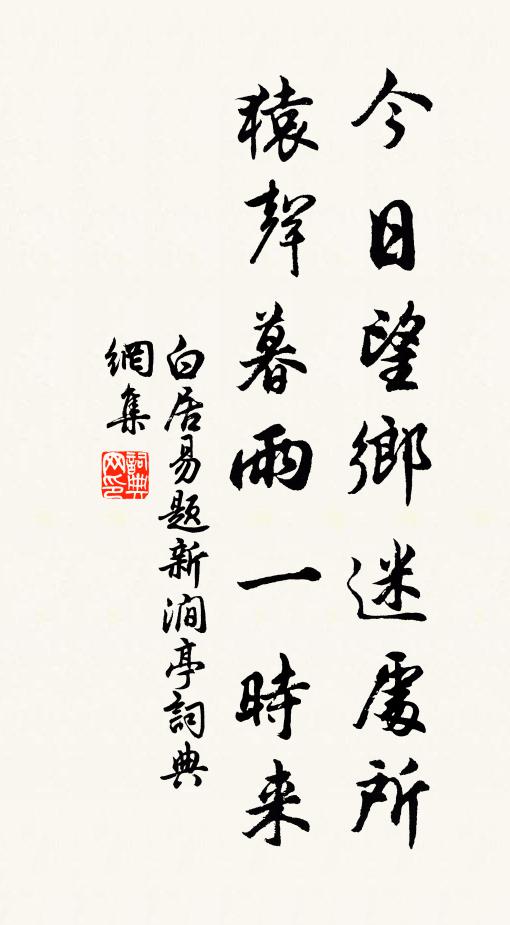 今日望鄉迷處所
猿聲暮雨一時来
白居易題新澗亭詞典
網集
詞典网印